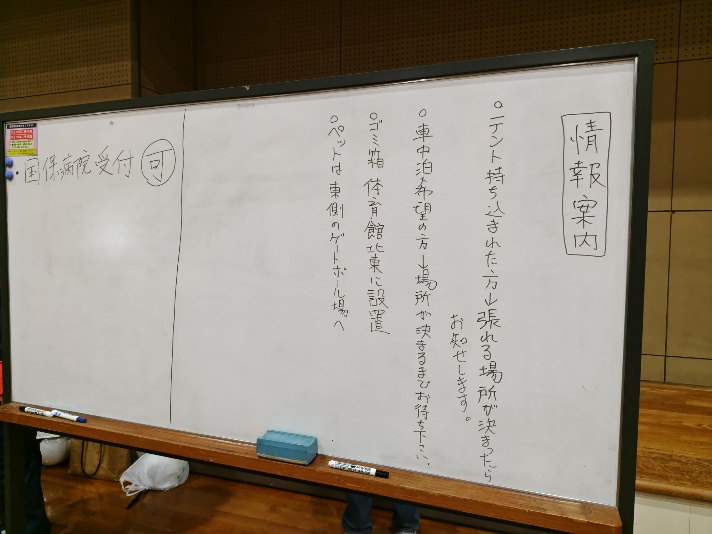 情報案内
○テント持ち込まれた方→張れる場所が決まったら
お知せします。
○車中泊希望の方→場所が決まるまでお待ち下さい。
○ゴミ箱 体育館北東に設置
○ペットは東側のゲートボール場へ
・国保病院受付 可